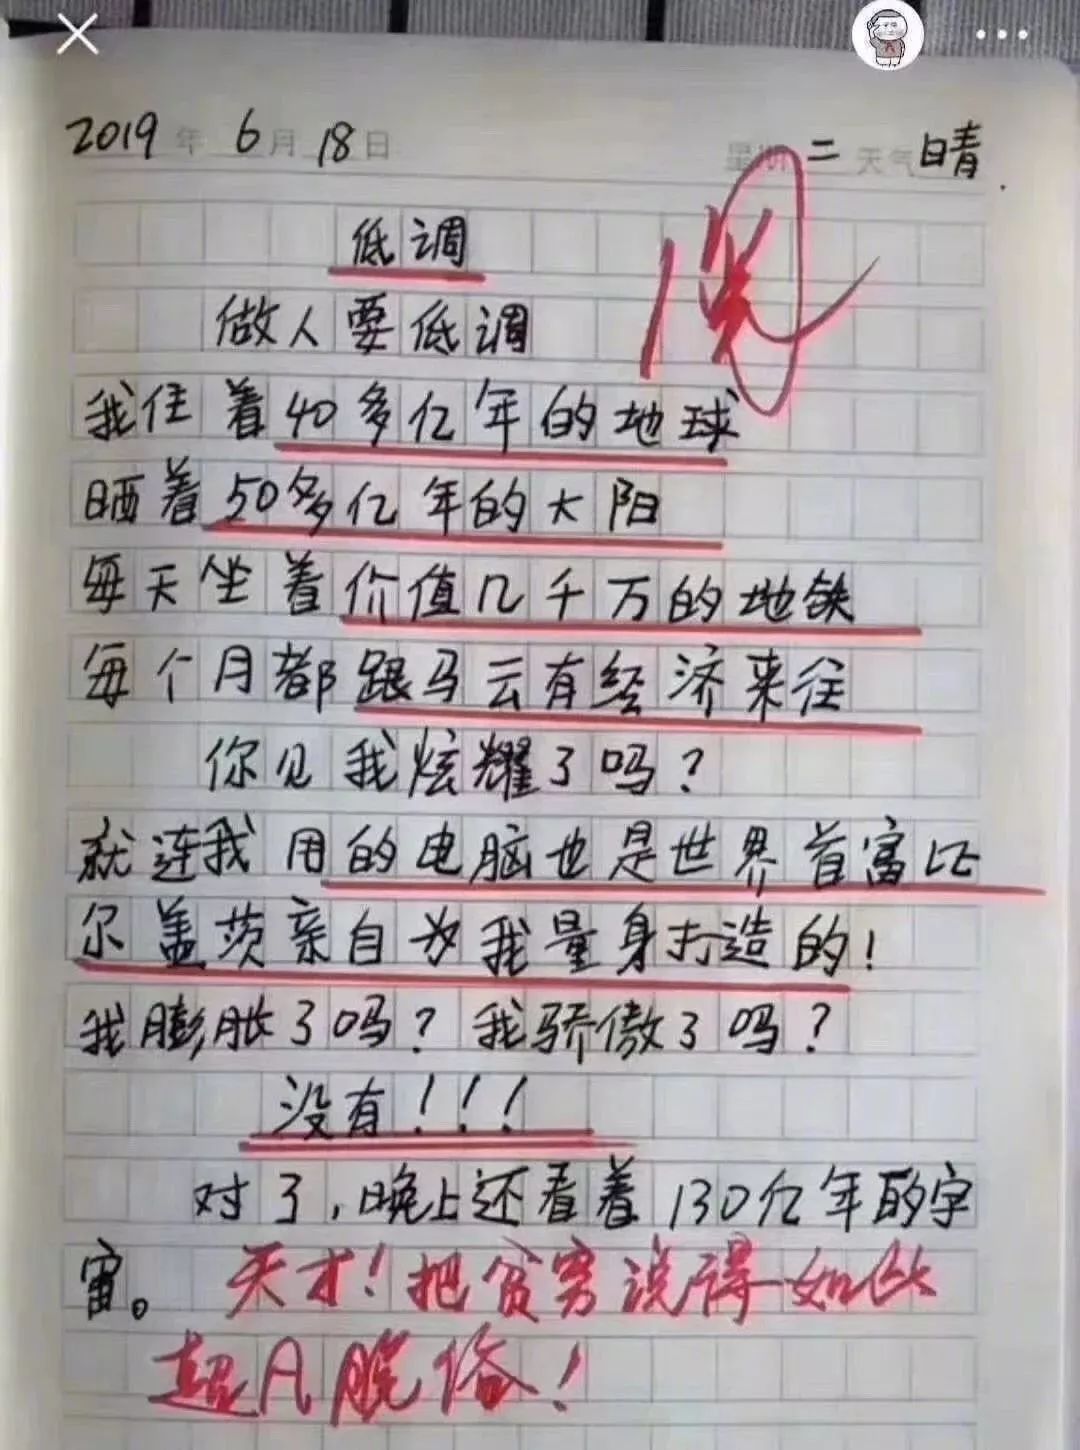 2019年 6月 18日 星期 二 天气 晴
低调
做人要低调
我住着40多亿年的地球
晒着50多亿年的大阳
每天坐着价值几千万的地铁
每个月都跟马云有经济来往
你见我炫耀了吗?
就连我用的电脑也是世界首富比
尔盖茨亲自为我量身打造的!
我膨胀了吗?我骄傲了吗?
没有!!!
对了,晚上还看着130亿年的宇
宙。天才!把贫穷说得如此
超凡脱俗!